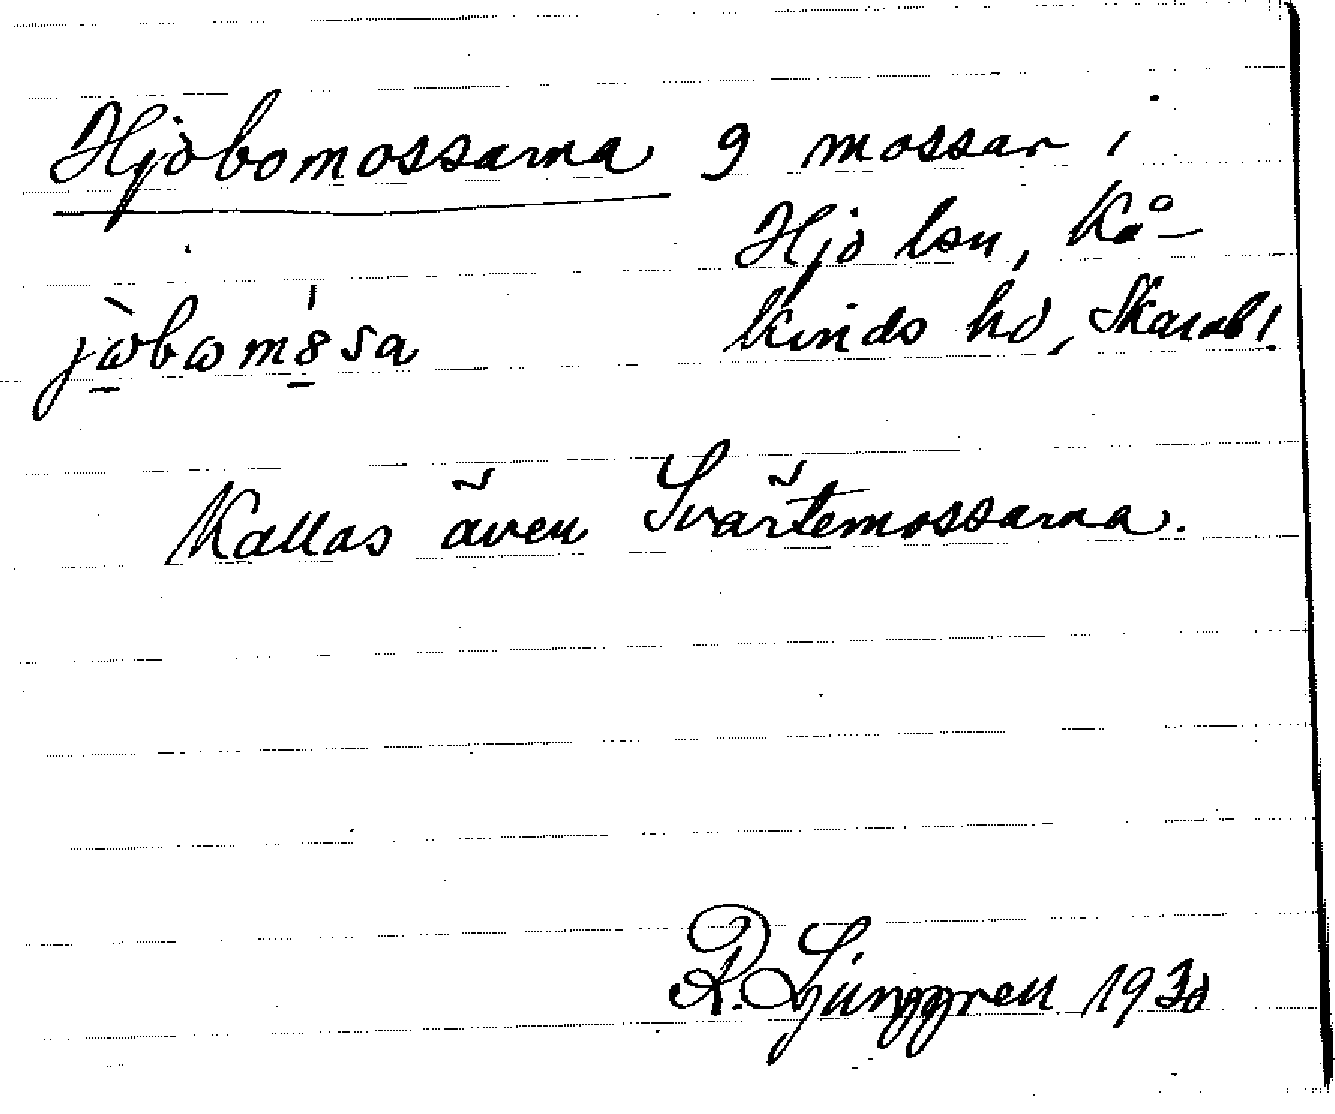 Hjobomossarna 9 mossar i
Hjo lsn, Kå-
kinds hd, Skarabl.
jωbωm8sa
Kallas även Svärtemossarna.
R. Ljunggren 1930